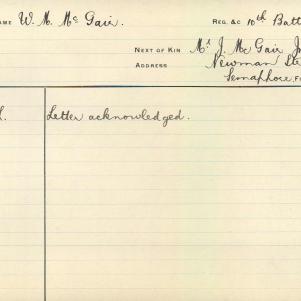 NAME W. M. McGair. REG. &C 10th Batt
NEXT OF KIN Mr J. McGair
ADDRESS Newman Ste
Semaphore
Letter acknowledged.